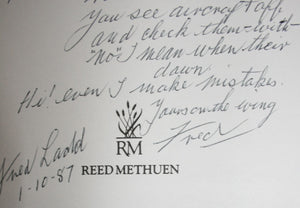 You see aircraft app
and check them - with-
"no" I mean when their
down.
Hi! even I make mistakes.
Yours on the wing
Fred
Fred Ladd
1-10-87
RM
REED METHUEN